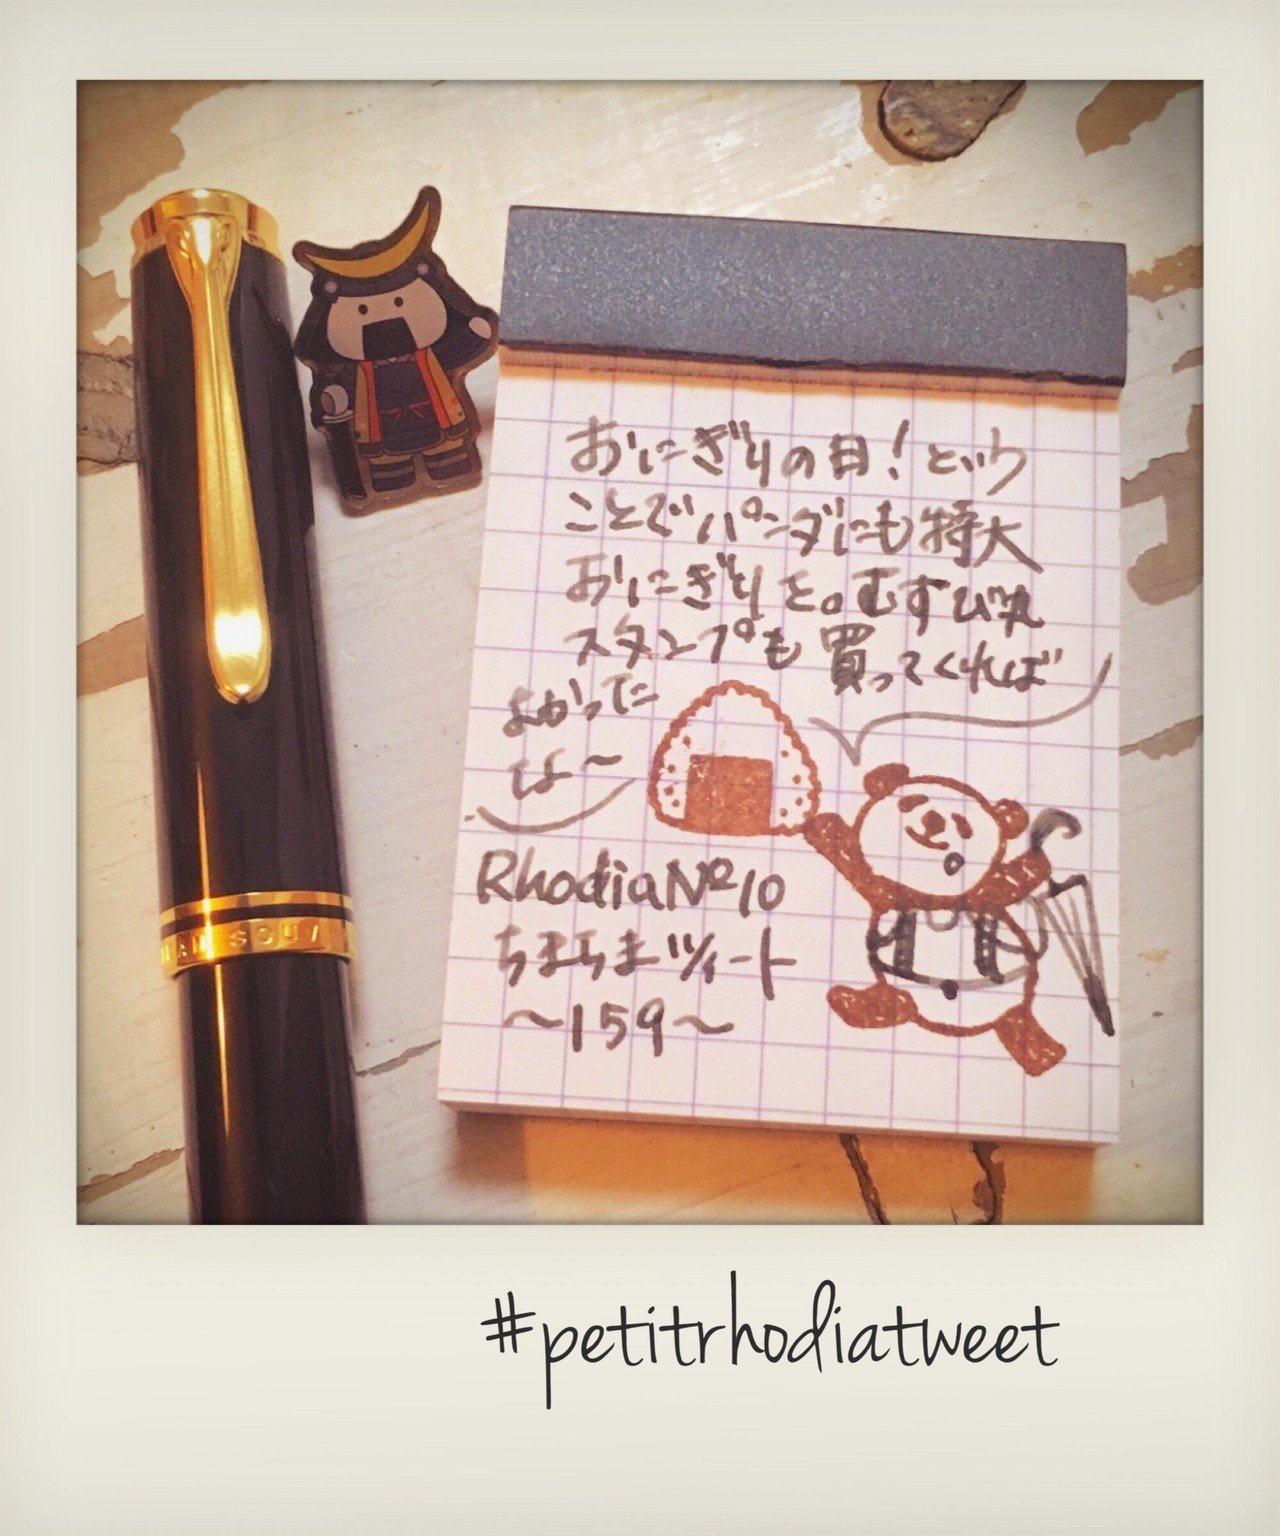 おにぎりの日!という
ことでパンダにも特大
おにぎりを。むすび丸
スタンプも買ってくれば
よかってに
しよ〜
RhodiaNº10
ちまちまツイート
〜159〜
SOUV
#petitrhodiatweet